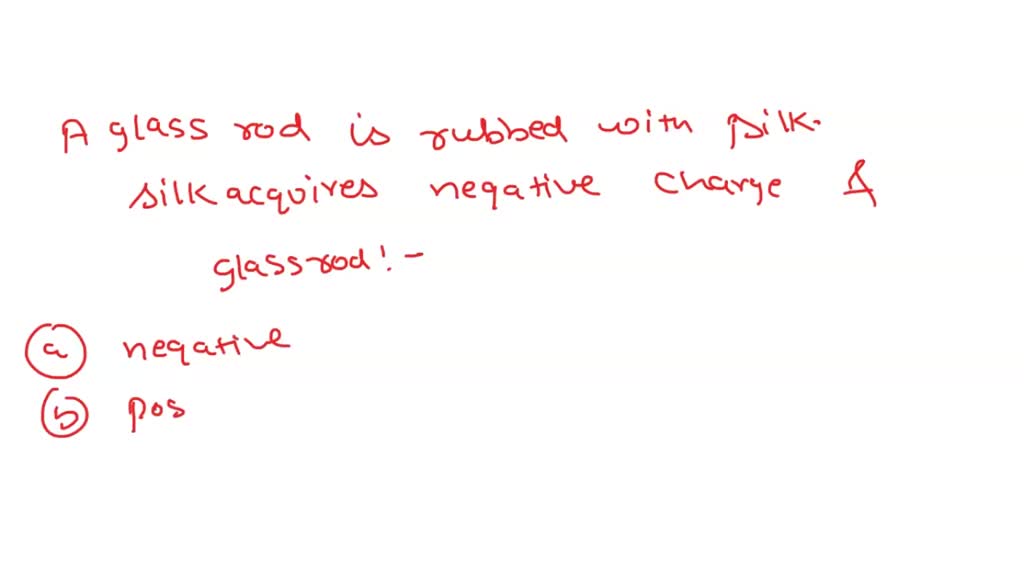 A glass rod is rubbed with silk.
silk acquires negative charge &
glass rod! -
a negative
b pos